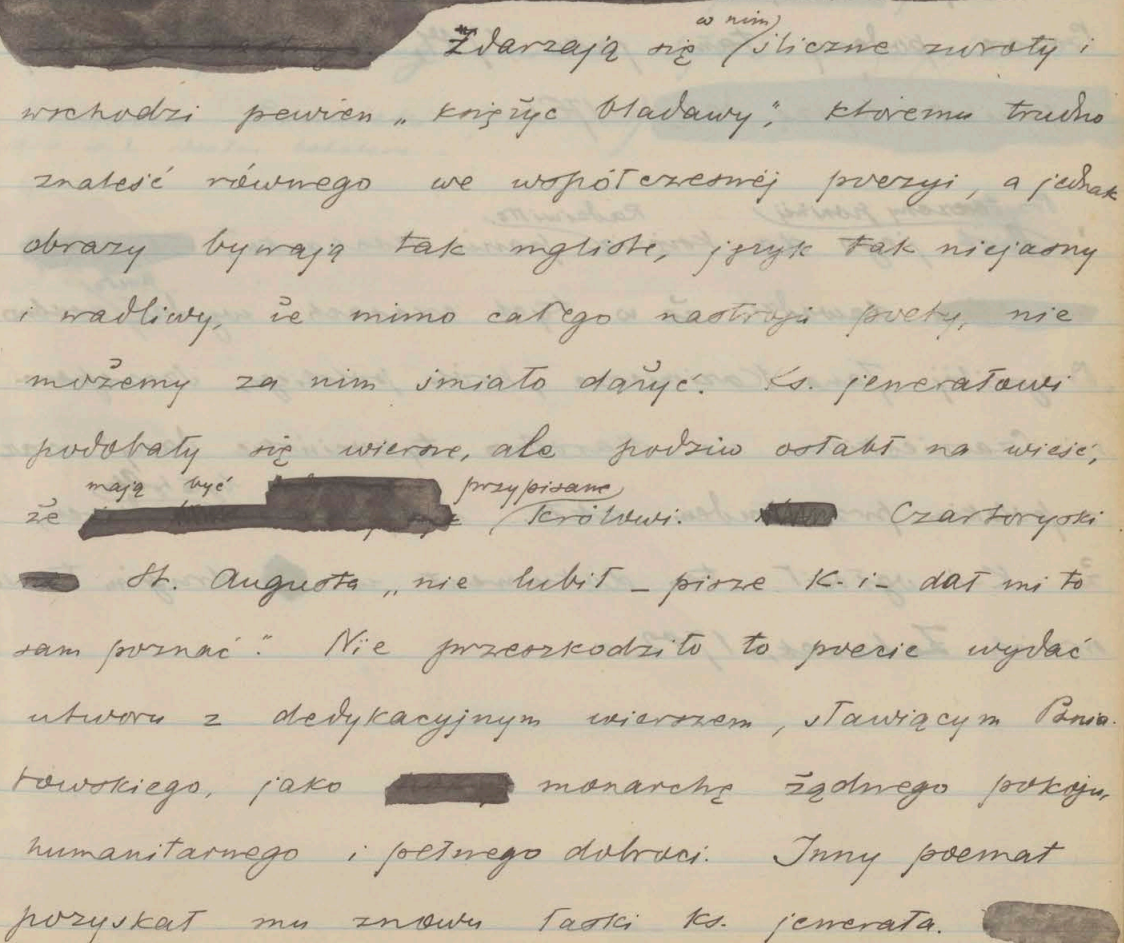 Zdarzają się w nim śliczne zwroty i
wschodzi pewien „księżyc bladawy", któremu trudno
znaleść równego we współczesnéj poezyi, a jednak
obrazy bywają tak mgliste, język tak niejasny
i wadliwy, że mimo całego nastroju poety, nie
możemy za nim śmiało dążyć. Ks. jenerałowi
podobały się wiersze, ale podziw osłabł na wieść,
że mają być przypisane królowi. Czartoryski
St. Augusta „nie lubił – pisze K-i – dał mi to
sam poznać". Nie przeszkodziło to poecie wydać
utworu z dedykacyjnym wierszem, sławiącym Ponia-
towskiego, jako monarchę żądnego pokoju,
humanitarnego i pełnego dobroci. Inny poemat
pozyskał mu znowu łaski ks. jenerała.